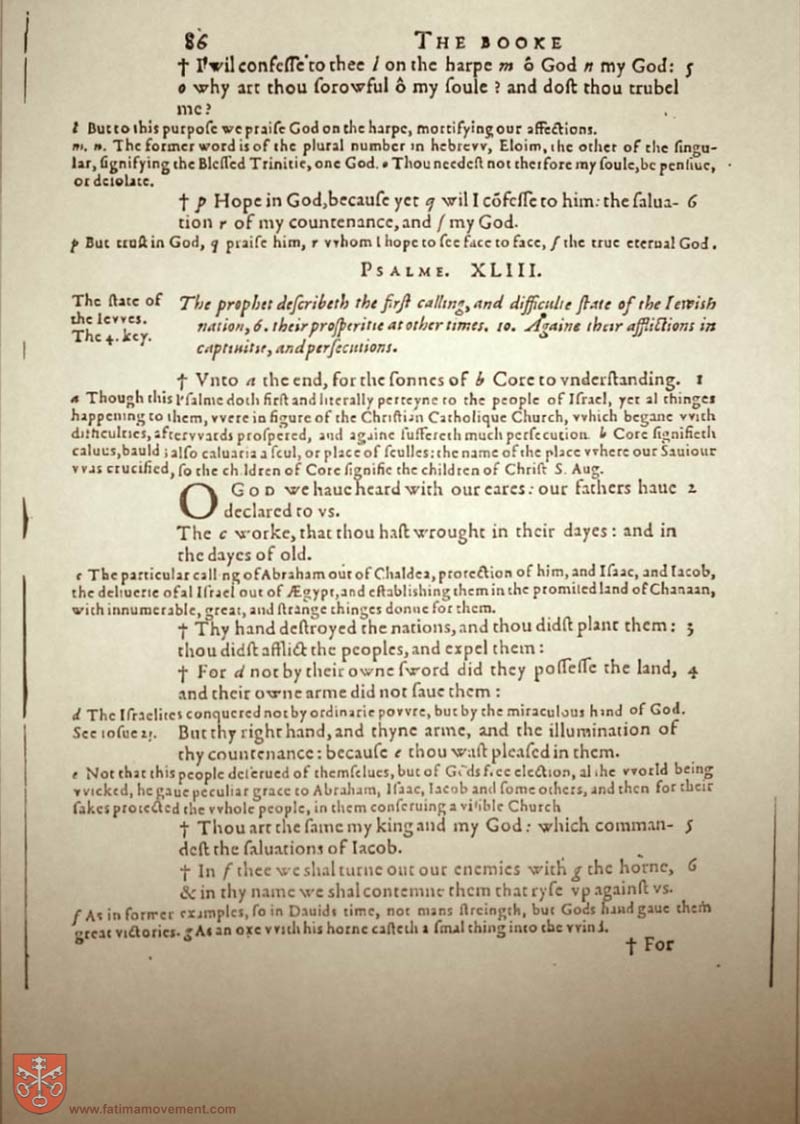 86 THE BOOKE
† I wil confesse to thee l on the harpe m ô God n my God: 5
o why art thou soroвful ô my soule ? and dost thou trubel
me?
l But to this purpose we praise God on the harpe, mortifying our affections.
m. n. The former word is of the plural number in hebrevv, Eloim, the other of the singu-
lar, signifying the Blessed Trinitie, one God. o Thou needest not therfore my soule, be pensiue,
or desolate.
† p Hope in God, because yet q wil I cõfesse to him: the salua- 6
tion r of my countenance, and s my God.
p But trust in God, q praise him, r vvhom I hope to see face to face, s the true eternal God.
PSALME. XLIII.
The state of
the Ievves.
The 4. key.
The prophet describeth the first calling, and difficulte state of the Iewish
nation, 6. their prosperitie at other times. 10. Againe their afflictions in
captiuitie, and persecutions.
† Vnto a the end, for the sonnes of b Core to vnderstanding. 1
a Though this Psalme doth first and literally perteyne to the people of Israel, yet al thinges
happening to them, vvere in figure of the Christian Catholique Church, vvhich begane vvith
difficulties, aftervvards prospered, and againe suffereth much persecution. b Core signifieth
caluus, bauld ; also caluaria a scul, or place of sculles: the name of the place vvhere our Sauiour
vvas crucified, so the children of Core signifie the children of Christ S. Aug.
O GOD we haue heard with our eares: our fathers haue 2
declared to vs.
The c worke, that thou hast wrought in their dayes: and in
the dayes of old.
c The particular calling of Abraham out of Chaldea, protection of him, and Isaac, and Iacob,
the deliuerie of al Israel out of Ægypt, and establishing them in the promised land of Chanaan,
with innumerable, great, and strange thinges donne for them.
† Thy hand destroyed the nations, and thou didst plant them: 3
thou didst afflict the peoples, and expel them:
† For d not by their owne sword did they possesse the land, 4
and their owne arme did not saue them:
d The Israelites conquered not by ordinarie povvre, but by the miraculous hand of God.
See Iosue
But thy right hand, and thyne arme, and the illumination of
thy countenance: because e thou wast pleased in them.
e Not that this people deserued of themselues, but of Gods free election, al the vvorld being
vvicked, he gaue peculiar grace to Abraham, Isaac, Iacob and some others, and then for their
sakes protected the vvhole people, in them conseruing a visible Church
† Thou art the same my king and my God: which comman- 5
dest the saluations of Iacob.
† In f thee we shal turne out our enemies with g the horne, 6
& in thy name we shal contemne them that ryse vp against vs.
f As in former examples, so in Dauids time, not mans streingth, but Gods hand gaue them
great victories. g As an oxe vvith his horne casteth a smal thing into the vvind.
† For
www.fatimamovement.com